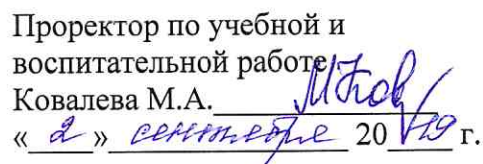 Проректор по учебной и
воспитательной работе
Ковалева М.А.
« 2 » сентября 2019 г.